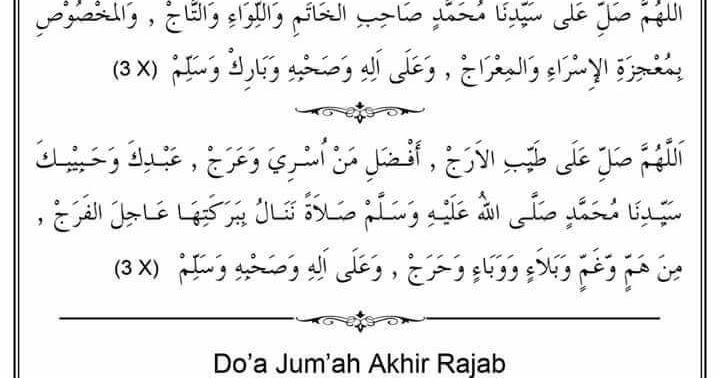 اَللّٰهُمَّ صَلِّ عَلَى سَيِّدِنَا مُحَمَّدٍ صَاحِبِ الْخَاتَمِ وَاللِّوَاءِ وَالتَّاجْ , وَالْمَخْصُوْصِ
بِمُعْجِزَةِ الإِسْرَاءِ وَالمِعْرَاجْ , وَعَلَى اَلِهِ وَصَحْبِهِ وَبَارِكْ وَسَلِّمْ (3 X)
اَللَّهُمَّ صَلِّ عَلَى طَيِّبِ الاَرَجْ , أَفْضَلِ مَنْ اُسْرِيَ وَعَرَجْ , عَبْدِكَ وَحَبِيْبِكَ
سَيِّدِنَا مُحَمَّدٍ صَلَّى اللهُ عَلَيْهِ وَسَلَّمْ صَلاَةً نَنَالُ بِبَرَكَتِهَا عَاجِلَ الفَرَجْ ,
مِنَ هَمٍّ وَّغَمٍّ وَبَلاَءٍ وَوَبَاءٍ وَحَرَجْ , وَعَلَى اَلِهِ وَصَحْبِهِ وَسَلِّمْ (3 X)
Do’a Jum’ah Akhir Rajab